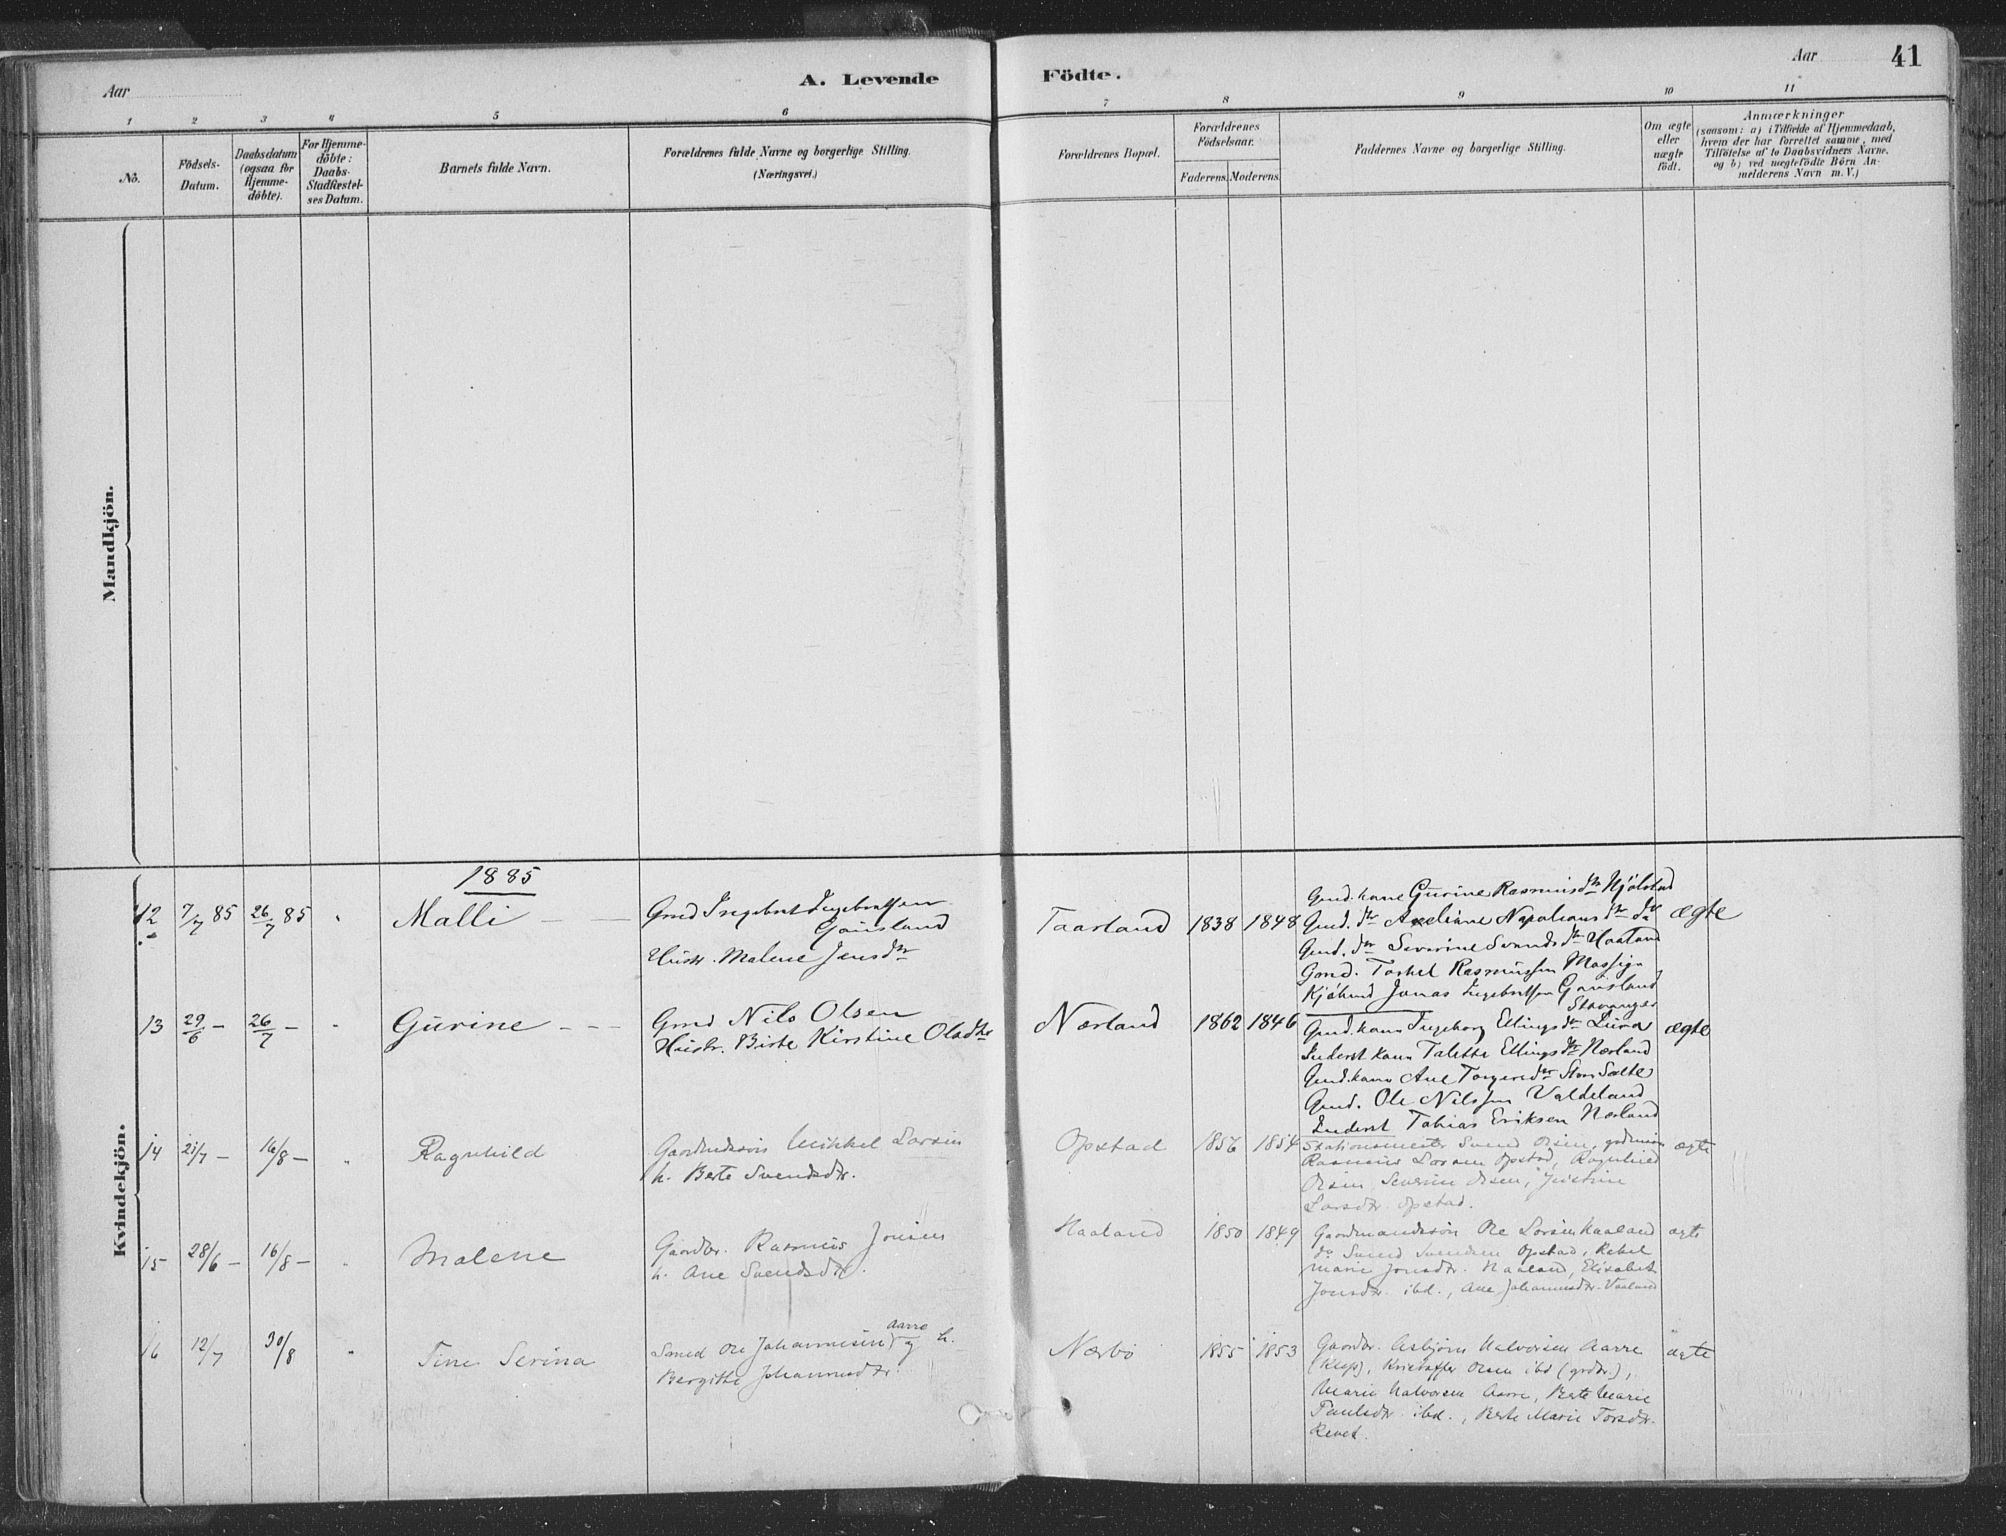 Aar
A. Levende
Födte.
Aar
41
1 2 3 4 5 6 7 8 9 10 11
No.
Födsels-
Datum.
Daabsdatum
(ogsaa for
Hjemme-
døbte).
For Hjemme-
döbte:
Daabs-
Stadfæstel-
ses Datum.
Barnets fulde Navn.
Forældrenes fulde Navne og borgerlige Stilling.
(Næringsvei.)
Forældrenes Bopæl.
Forældrenes
Födselsaar.
Faderens. Moderens.
Faddernes Navne og borgerlige Stilling.
Om ægte
eller
uægte
födt.
Anmærkninger
(saasom: a) i Tilfælde af Hjemmedaab,
hvem der har forrettet samme, med
Tilföielse af to Daabsvidners Navne.
og b) ved uægtefödte Börn An-
melderens Navn m. V.)
Mandkjön.
Kvindekjön.
1885
12 7/7 85 26/7 85 " Malli
Gmd Ingebret Ingebretsen
Gausland
Hustr. Malene Jensdtr
Taarland 1838 1848
Gmd. kone Gurine Rasmusdtr Njølstad
Gmd. dtr Axeliane Napoleonsdtr do
Gmd. dtr Severine Svendsdtr Haaland
Gmd. Torkel Rasmussen Mossige
Kjøbmd Jonas Ingebretsen Gausland
Stavanger
ægte
13 29/6 - 26/7 - " Gurine
Gmd Nils Olsen
Hustr. Birte Kirstine Olsdtr
Nærland 1862 1846
Gmd. kone Ingeborg Ellingsdtr Lura
Inderst kone Talette Ellingsdtr Nærland
Gmd. kone Ane Torgersdtr Stor Salte
Gmd. Ole Nilssen Valdeland
Inderst Tobias Eriksen Nærland
ægte
14 21/7 - 16/8 - " Ragnhild
Gaardmdssøn Mikkel Larsen
h. Berte Svendsdtr.
Opstad 1856 1854
Stationsmester Svend Olsen, grdmin
Rasmus Larsen Opstad, Ragnhild
Olsen, Severin Olsen, Justine
Larsdtr. Opstad.
ægte
15 28/6 - 16/8 - " Malene
Gaardbr. Rasmus Jonsen
h. Ane Svendsdtr.
Haaland 1850 1849
Gaardmandssøn Ole Larsen Haaland
do Svend Svendsen Opstad, Rebek
Marie Jonsdtr. Haaland, Elisabet
Jonsdtr. ibd., Ane Johannesdtr. Vaaland
ægte
16 12/7 30/8 " Tine Serina
Smed Ole Johannesen Aarre og h.
Bergitte Johannesdtr.
Nærbø 1855 1853
Gaardbr. Asbjørn Halvorsen Aarre
(Klep), Kristoffer Olsen ibd (grdbr),
Marie Halvorsen Aarre, Berte Marie
Paulsdtr. ibd., Berte Marie Torsdtr.
Revet.
ægte